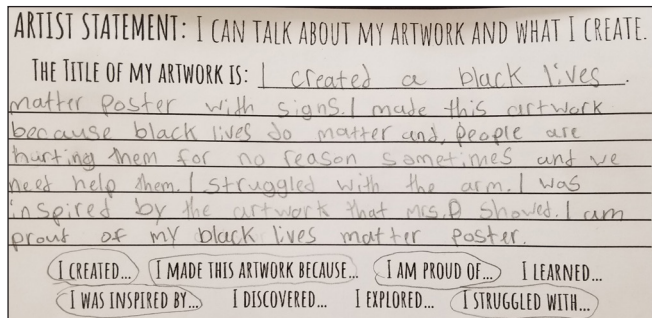 ARTIST STATEMENT: I CAN TALK ABOUT MY ARTWORK AND WHAT I CREATE.
THE TITLE OF MY ARTWORK IS: I created a black lives.
matter poster with signs. I made this artwork
because black lives do matter and, people are
hurting them for no reason sometimes and we
need help them. I struggled with the arm. I was
inspired by the artwork that Mrs.D showed. I am
proud of my black lives matter poster.
I CREATED... I MADE THIS ARTWORK BECAUSE... I AM PROUD OF... I LEARNED...
I WAS INSPIRED BY... I DISCOVERED... I EXPLORED... I STRUGGLED WITH...